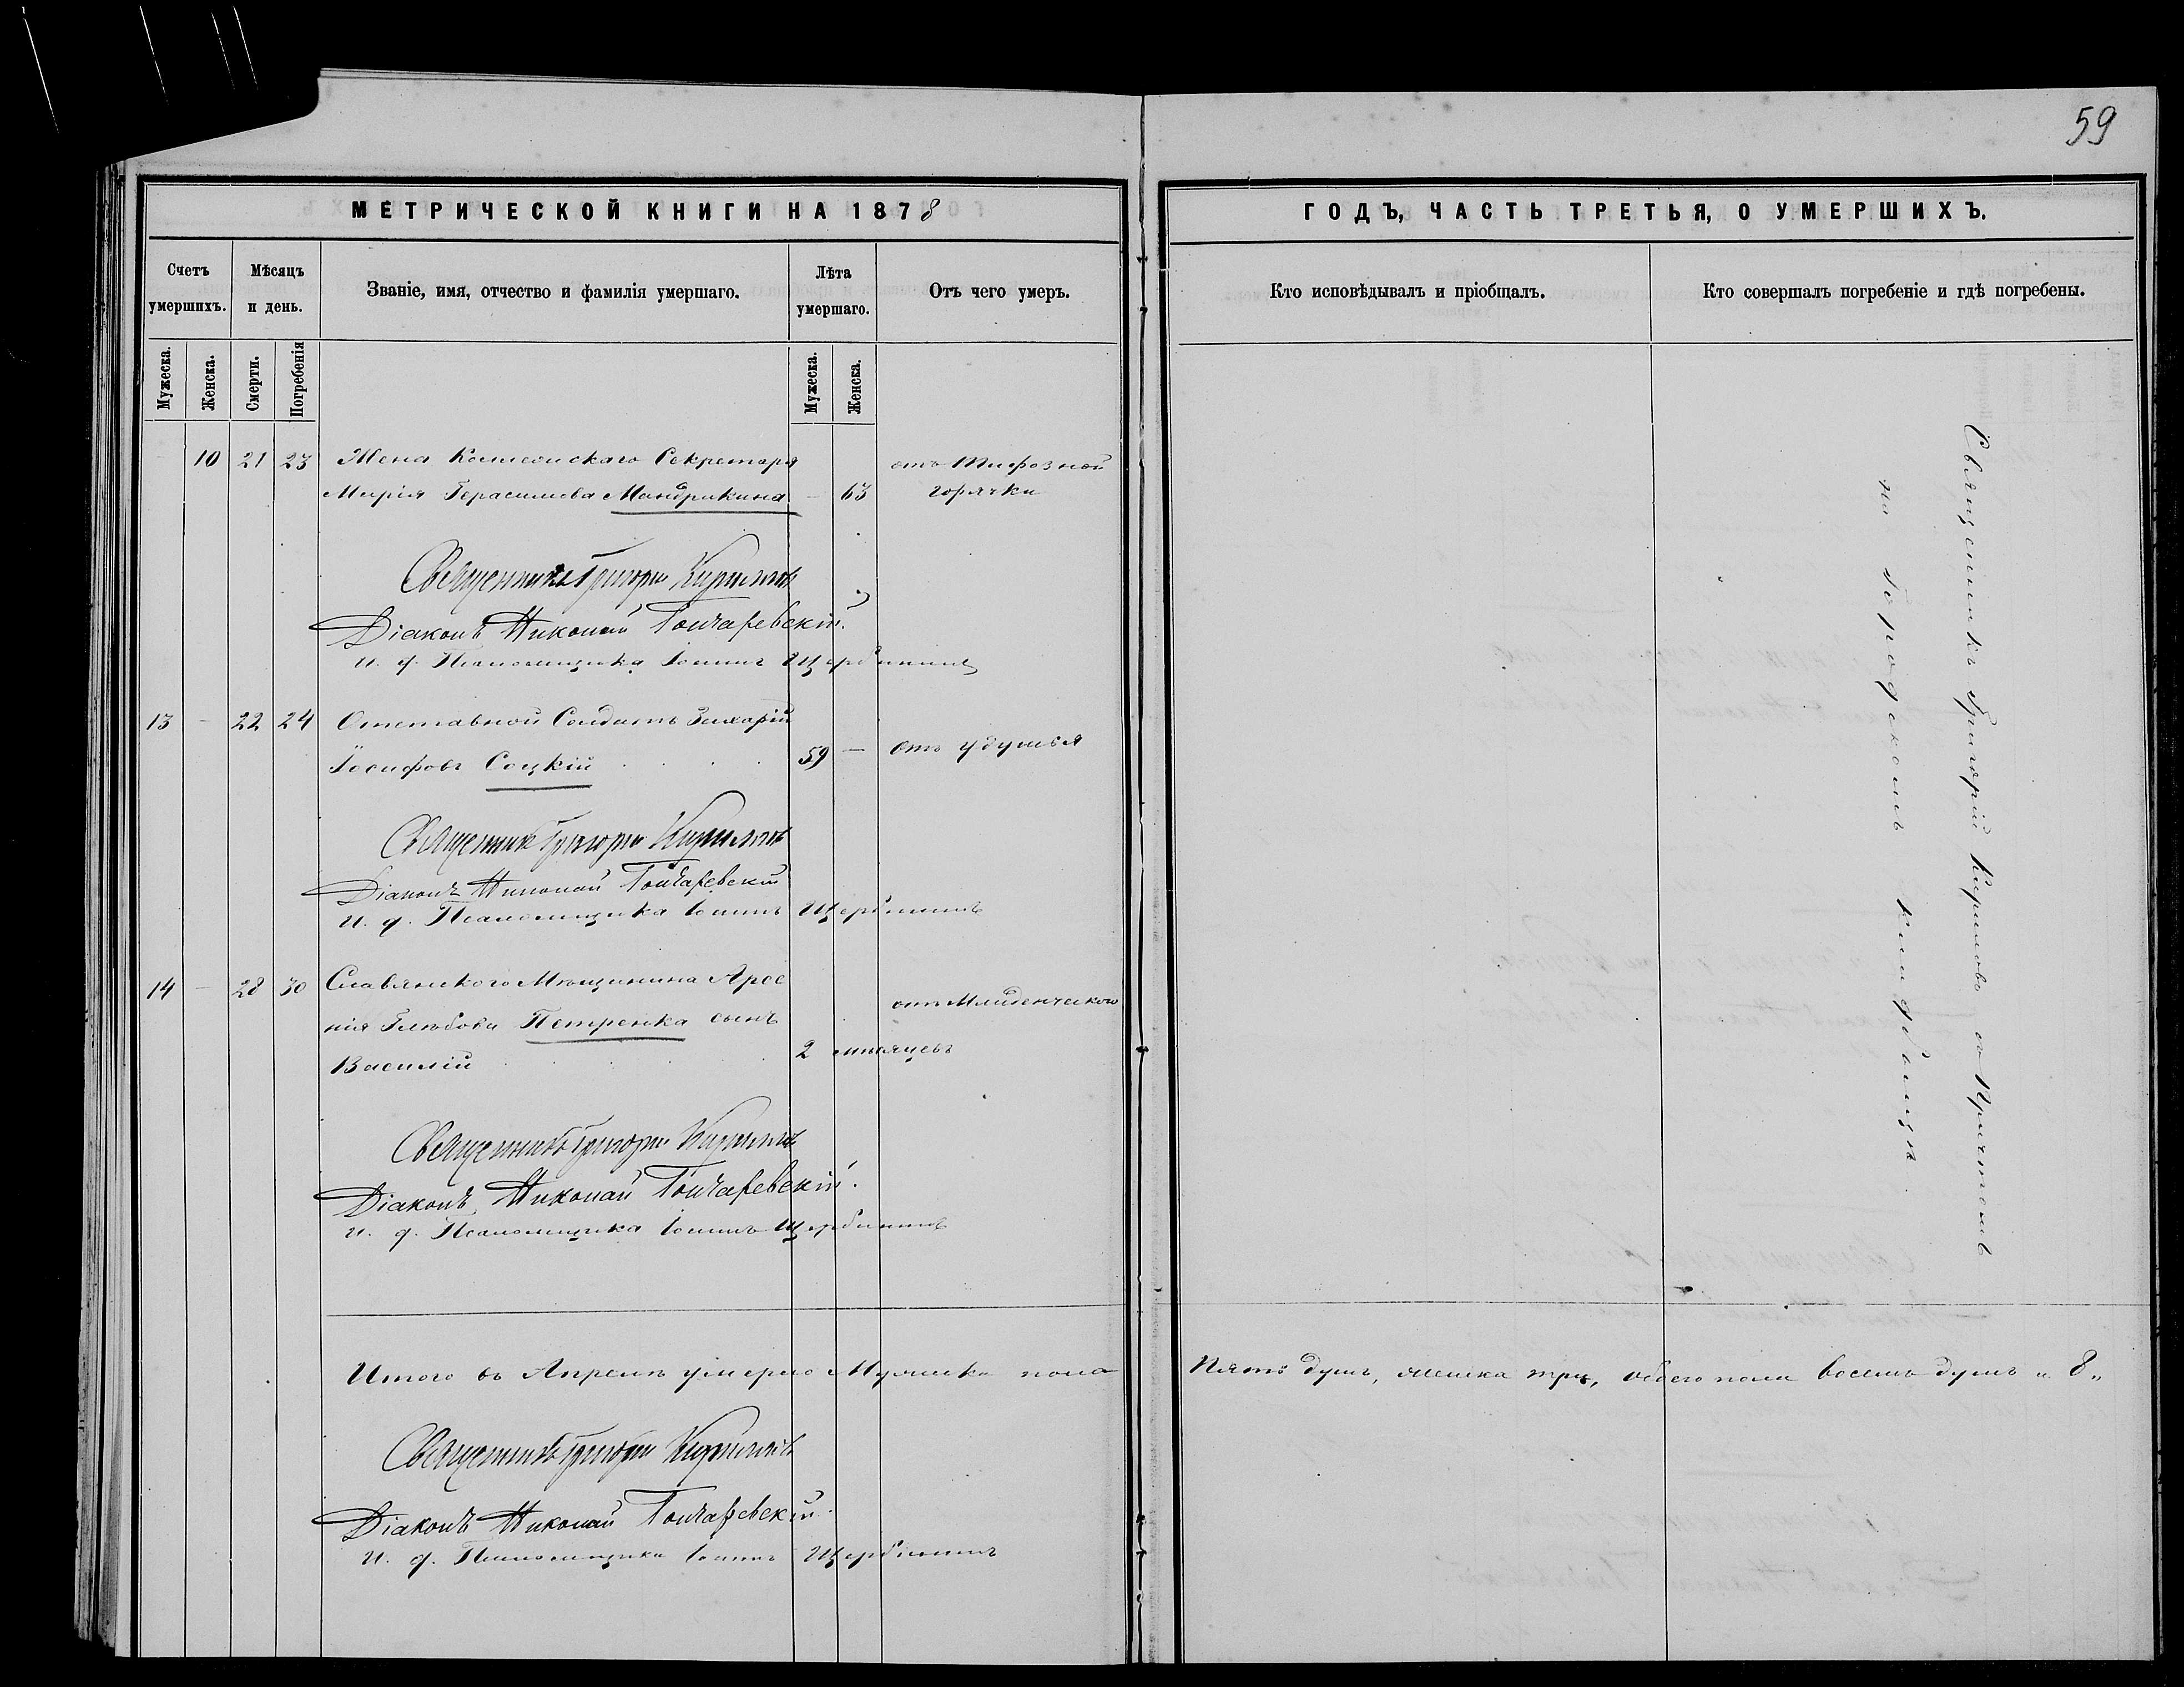 59
МЕТРИЧЕСКОЙ КНИГИ НА 1878
ГОДЪ, ЧАСТЬ ТРЕТЬЯ, О УМЕРШИХЪ.
Счетъ умершихъ.
Мѣсяцъ и день.
Званіе, имя, отчество и фамилія умершаго.
Лѣта умершаго.
Отъ чего умеръ.
Кто исповѣдывалъ и пріобщалъ.
Кто совершалъ погребеніе и гдѣ погребены.
Мужеска.
Женска.
Смерти.
Погребенія
Мужеска.
Женска.
10 21 23 Жена Коллежскаго Секретаря отъ Тифозной
Марія Герасимова Мандрикина – 63 горячки
Священникъ Григорій Кириловъ
Діаконъ Николай Гончаревскій.
и. д. Псаломщика Іоаннъ Щербининъ
13 – 22 24 Отставной Солдатъ Захарій
Іосифовъ Соцкій 59 – отъ удушья
Священникъ Григорій Кириловъ
Діаконъ Николай Гончаревскій
и. д. Псаломщика Іоаннъ Щербининъ
14 – 28 30 Славянскаго Мѣщанина Арсе
нія Глѣбова Петренка сынъ отъ Младенческаго
Василій 2 мѣсяцевъ
Священникъ Григорій Кириловъ
Діаконъ Николай Гончаревскій.
и. д. Псаломщика Іоаннъ Щербининъ
Священникъ Григорій Кириловъ съ Причтомъ
на Городскомъ кладбищѣ
Итого въ Апрелѣ умерло Мужеска пола Пять душъ, женска три, обоего пола восемь душъ „ 8 „
Священникъ Григорій Кириловъ
Діаконъ Николай Гончаревскій.
и. д. Псаломщика Іоаннъ Щербининъ